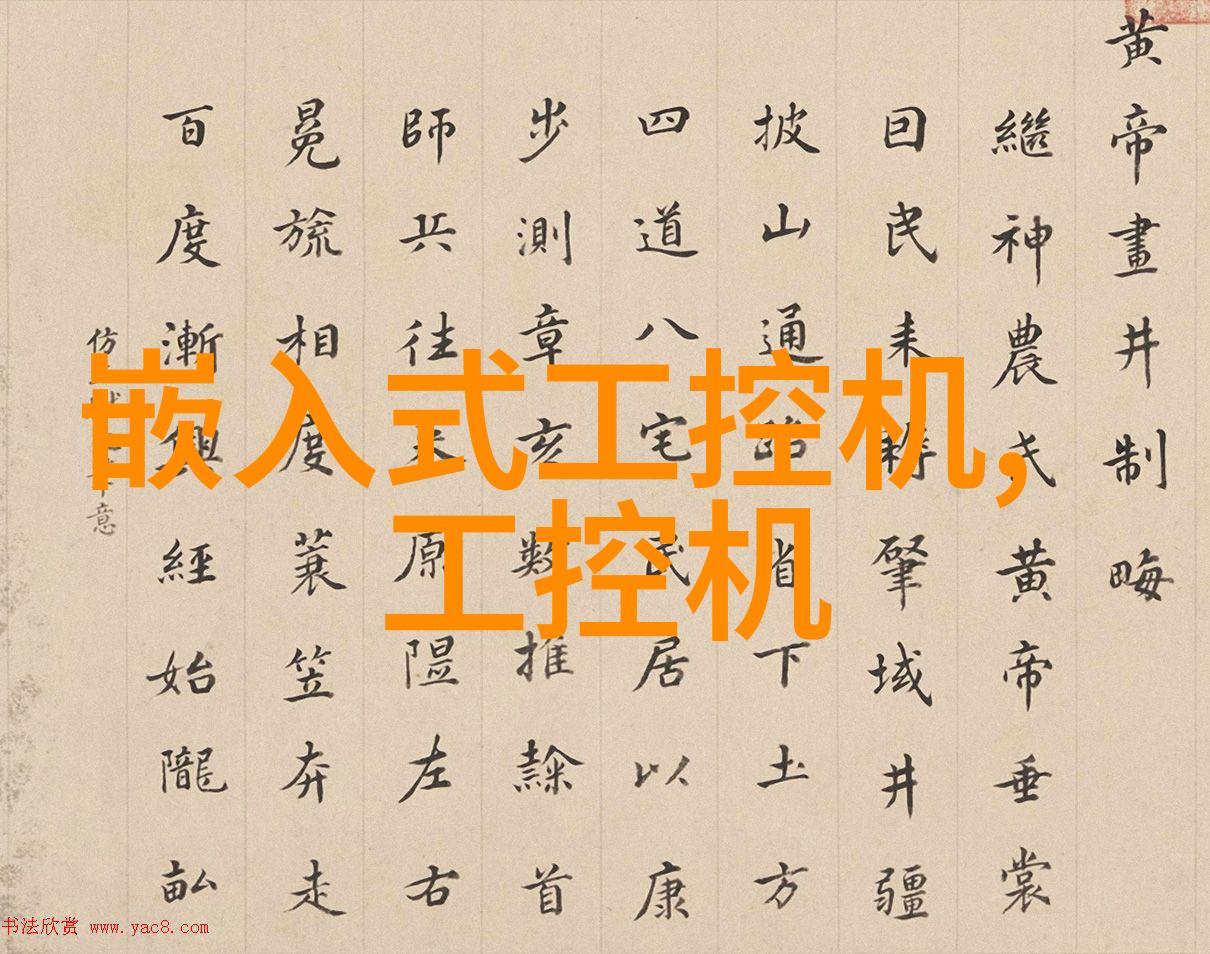 嵌入式工控机,
工控机
黄帝畫井制畮
繼神農氏黄帝垂裳
囙民耒耨肇域井疆
披山通路省下土方
四道八宅民居以康
步測章亥數推隸首
師兵往來原隰左右
冕旒相度蓑笠奔走
百度漸興經始隴畝
仿意
书法欣赏 www.yac8.com